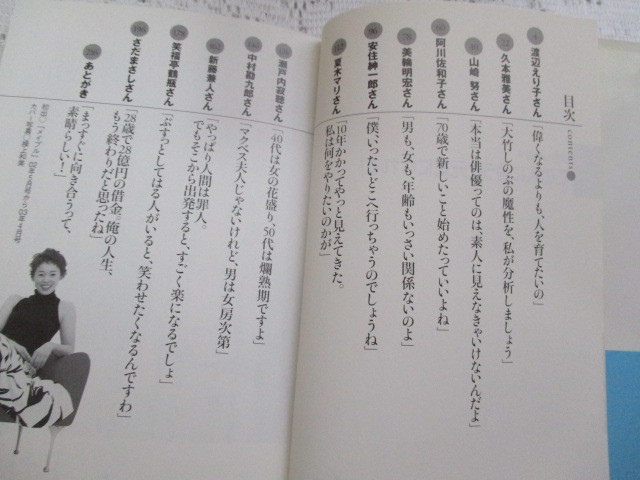 目次
contents
4
渡辺えり子さん
「偉くなるよりも、人を育てたいの」
久本雅美さん
「大竹しのぶの魔性を、私が分析しましょう」
山﨑 努さん
「本当は俳優ってのは、素人に見えなきゃいけないんだよ」
阿川佐和子さん
「70歳で新しいこと始めたっていいよね」
美輪明宏さん
「男も、女も、年齢もいっさい関係ないのよ」
96
安住紳一郎さん
「僕、いったいどこへ行っちゃうのでしょうね」
夏木マリさん
「10年かかってやっと見えてきた。
私は何をやりたいのかが」
瀬戸内寂聴さん
「40代は女の花盛り、50代は爛熟期ですよ」
中村勘九郎さん
「マクベス夫人じゃないけれど、男は女房次第」
新藤兼人さん
「やっぱり人間は罪人。
でもそこから出発すると、すごく楽になるでしょ」
笑福亭鶴瓶さん
「ぶすっとしてはる人がいると、笑わせたくなるんですわ」
さだまさしさん
「28歳で28億円の借金。俺の人生、
もう終わりだと思ったね」
あとがき
「まっすぐに向き合うって、
素晴らしい!」